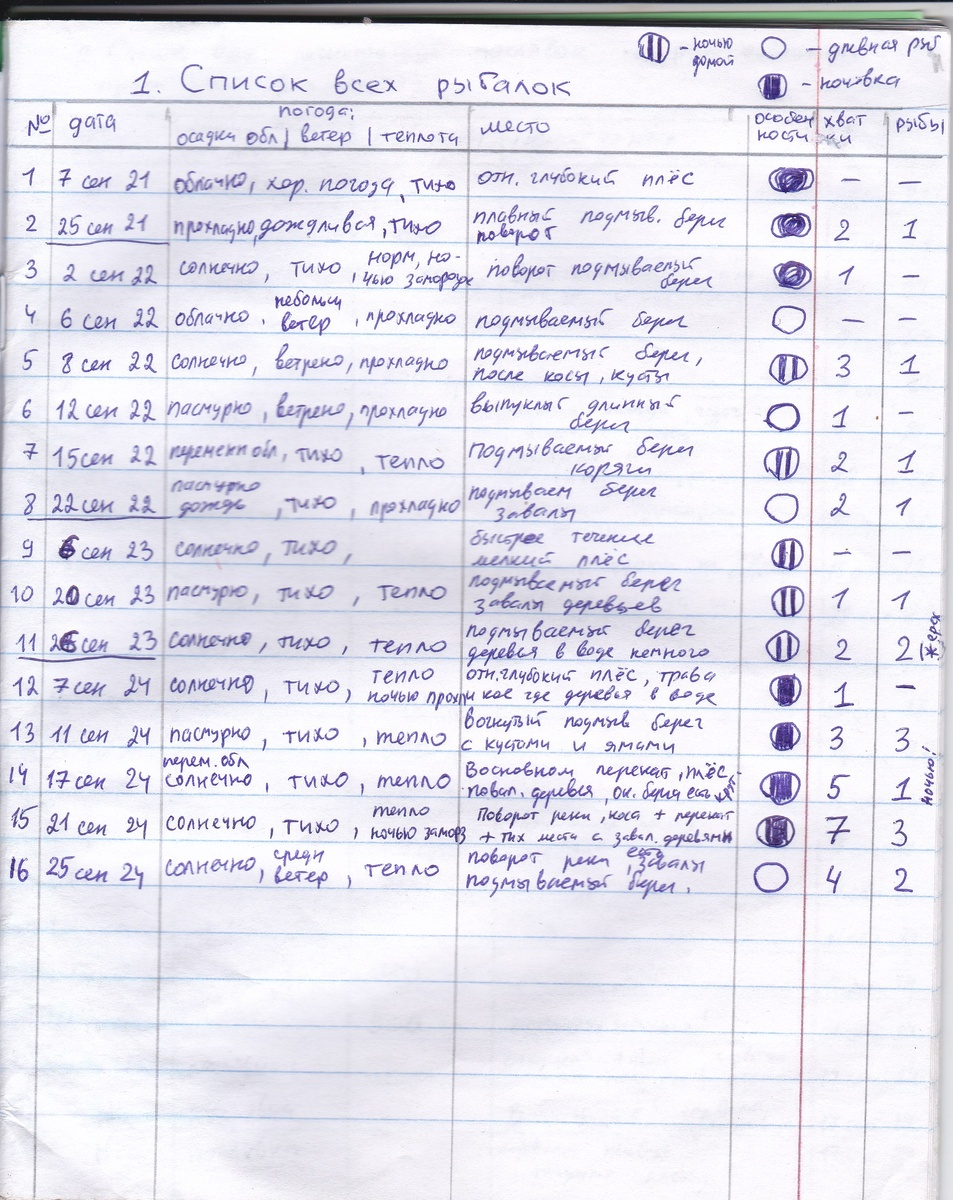 - ночью домой
- дневная рыб
- ночёвка
1. Список всех рыбалок
№ дата погода: осадки обл | ветер | теплота место особен ности хват ки рыбы
1 7 сен 21 облачно, хор. погода, тихо отн. глубокий плёс — —
2 25 сен 21 прохладно, дождливая, тихо плавный подмыв. берег поворот 2 1
3 2 сен 22 солнечно, тихо, норм, ночью заморозк поворот подмываемый берег 1 —
4 6 сен 22 облачно, небольш ветер, прохладно подмываемый берег — —
5 8 сен 22 солнечно, ветрено, прохладно подмываемый берег, после косы, кусты 3 1
6 12 сен 22 пасмурно, ветрено, прохладно выпуклый длинный берег 1 —
7 15 сен 22 перемен обл, тихо, тепло подмываемый берег коряги 2 1
8 22 сен 22 пасмурно дождь, тихо, прохладно подмываем берег завалы 2 1
9 6 сен 23 солнечно, тихо, быстрое течение мелкий плёс — —
10 20 сен 23 пасмурно, тихо, тепло подмываемый берег завалы деревьев 1 1
11 26 сен 23 солнечно, тихо, тепло подмываемый берег деревья в воде немного 2 2
12 7 сен 24 солнечно, тихо, тепло ночью прохл отн. глубокий плёс, трава и кое где деревья в воде 1 —
13 11 сен 24 пасмурно, тихо, тепло вогнутый подмыв берег с кустами и ямами 3 3
14 17 сен 24 перем. обл солнечно, тихо, тепло Восновном перекат, плёс, повал. деревья, ок. берега есть 5 1 ночью!
15 21 сен 24 солнечно, тихо, тепло ночью замороз Поворот реки, коса + перекат + тих места с завал. деревьями 7 3
16 25 сен 24 солнечно, средн ветер, тепло поворот реки есть завалы подмываемый берег. 4 2